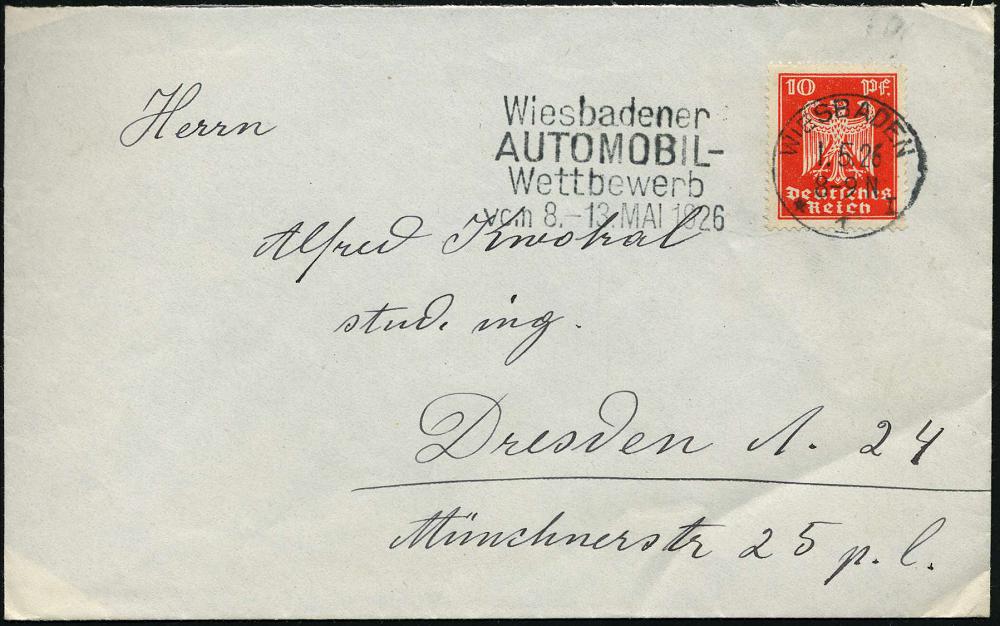 Herrn
Wiesbadener
AUTOMOBIL-
Wettbewerb
vom 8.-13. MAI 1926
10 Pf.
Deutsches
Reich
WIESBADEN
1.5.26
8-9 N.
* 1 I
Alfred
stud. ing.
Dresden A. 24
Münchnerstr 25 p. l.